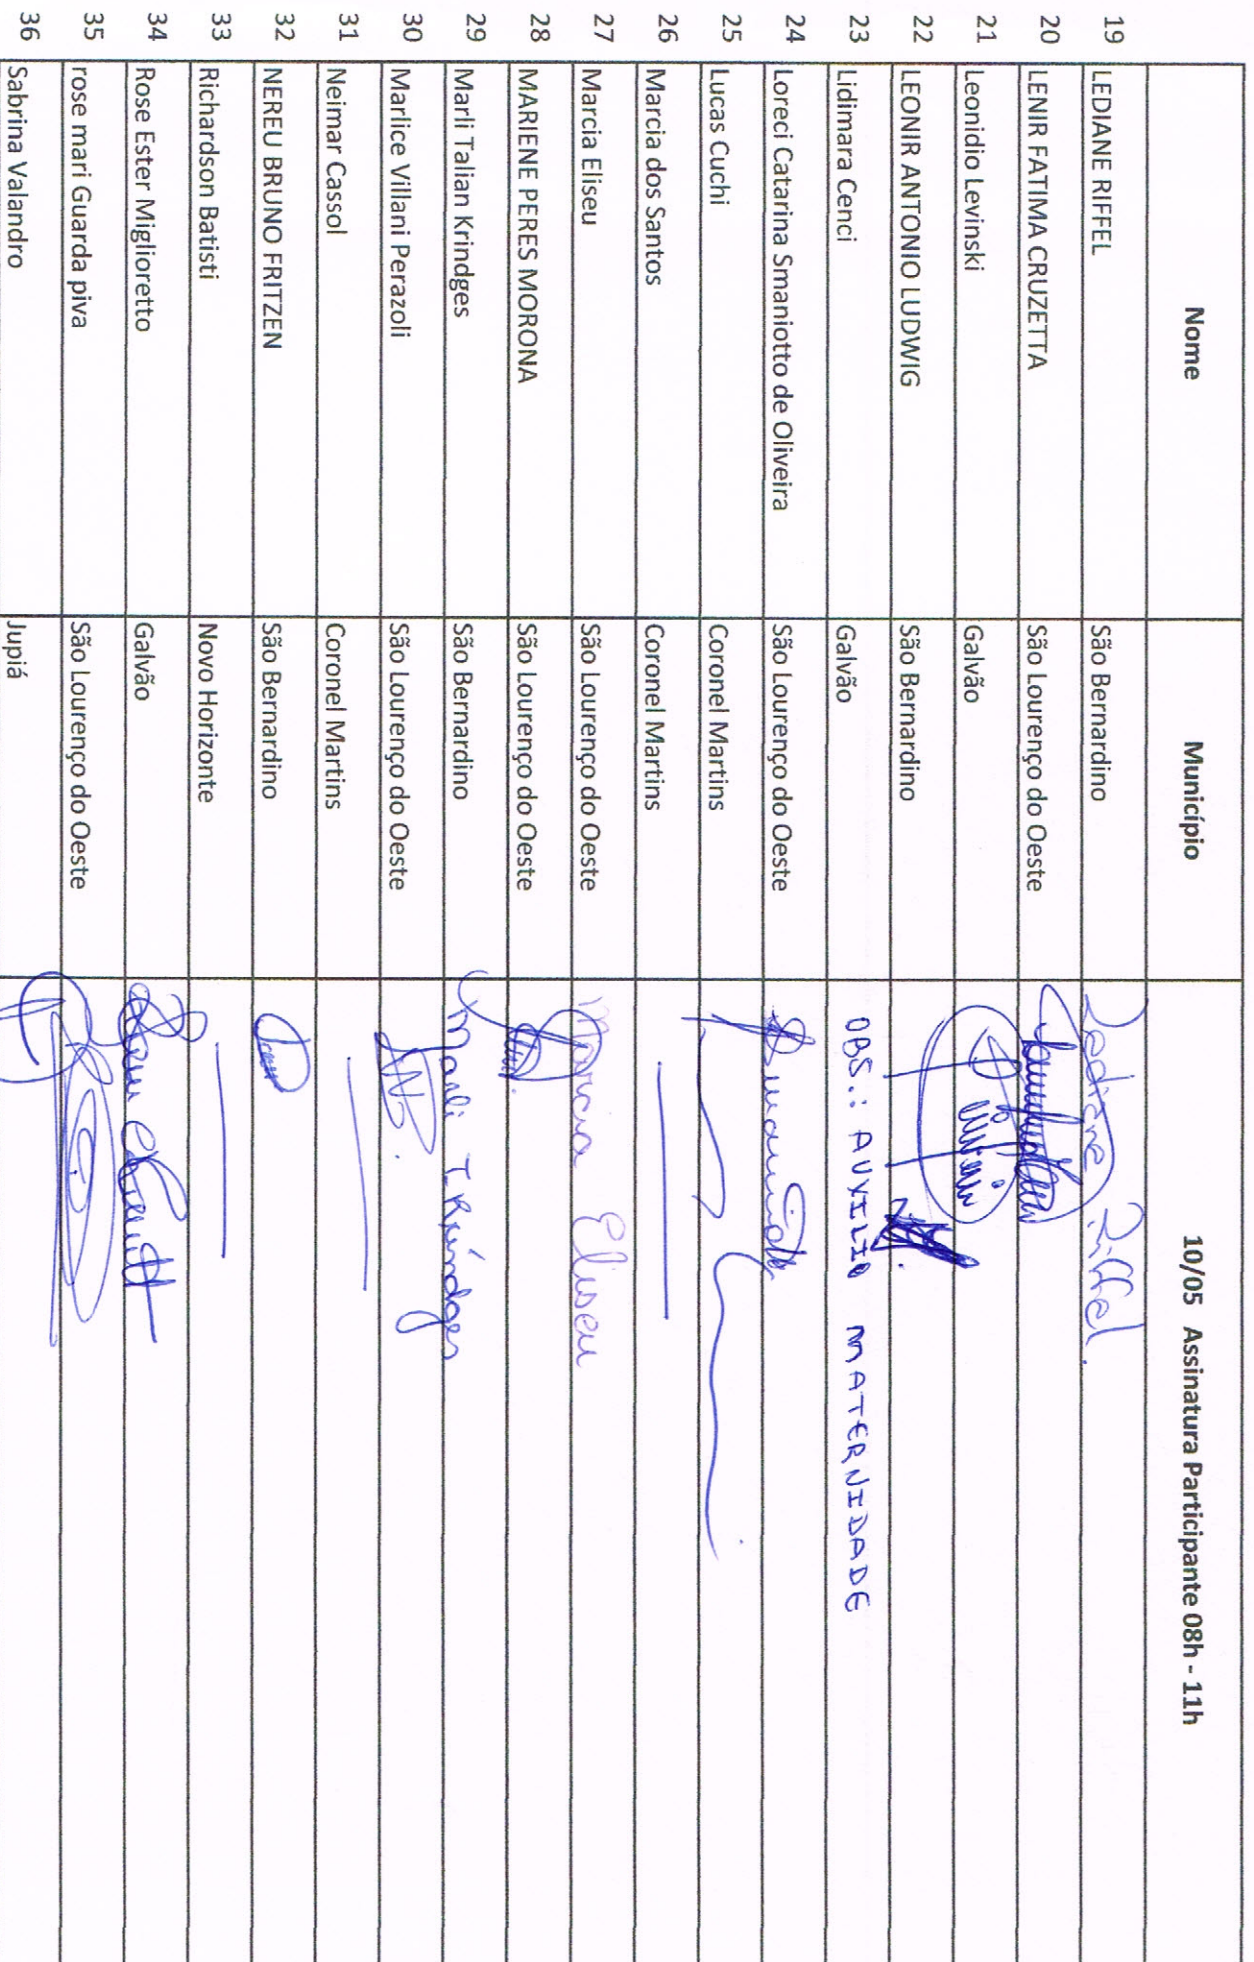 Nome Município 10/05 Assinatura Participante 08h - 11h
19 LEDIANE RIFFEL São Bernardino Lediane Riffel.
20 LENIR FATIMA CRUZETTA São Lourenço do Oeste
21 Leonidio Levinski Galvão
22 LEONIR ANTONIO LUDWIG São Bernardino
23 Lidimara Cenci Galvão OBS.: AUXILIO MATERNIDADE
24 Loreci Catarina Smaniotto de Oliveira São Lourenço do Oeste
25 Lucas Cuchi Coronel Martins
26 Marcia dos Santos Coronel Martins
27 Marcia Eliseu São Lourenço do Oeste Marcia Eliseu
28 MARIENE PERES MORONA São Lourenço do Oeste
29 Marli Talian Krindges São Bernardino Marli T. Krindges
30 Marlice Villani Perazoli São Lourenço do Oeste
31 Neimar Cassol Coronel Martins
32 NEREU BRUNO FRITZEN São Bernardino
33 Richardson Batisti Novo Horizonte
34 Rose Ester Miglioretto Galvão
35 rose mari Guarda piva São Lourenço do Oeste
36 Sabrina Valandro Jupiá